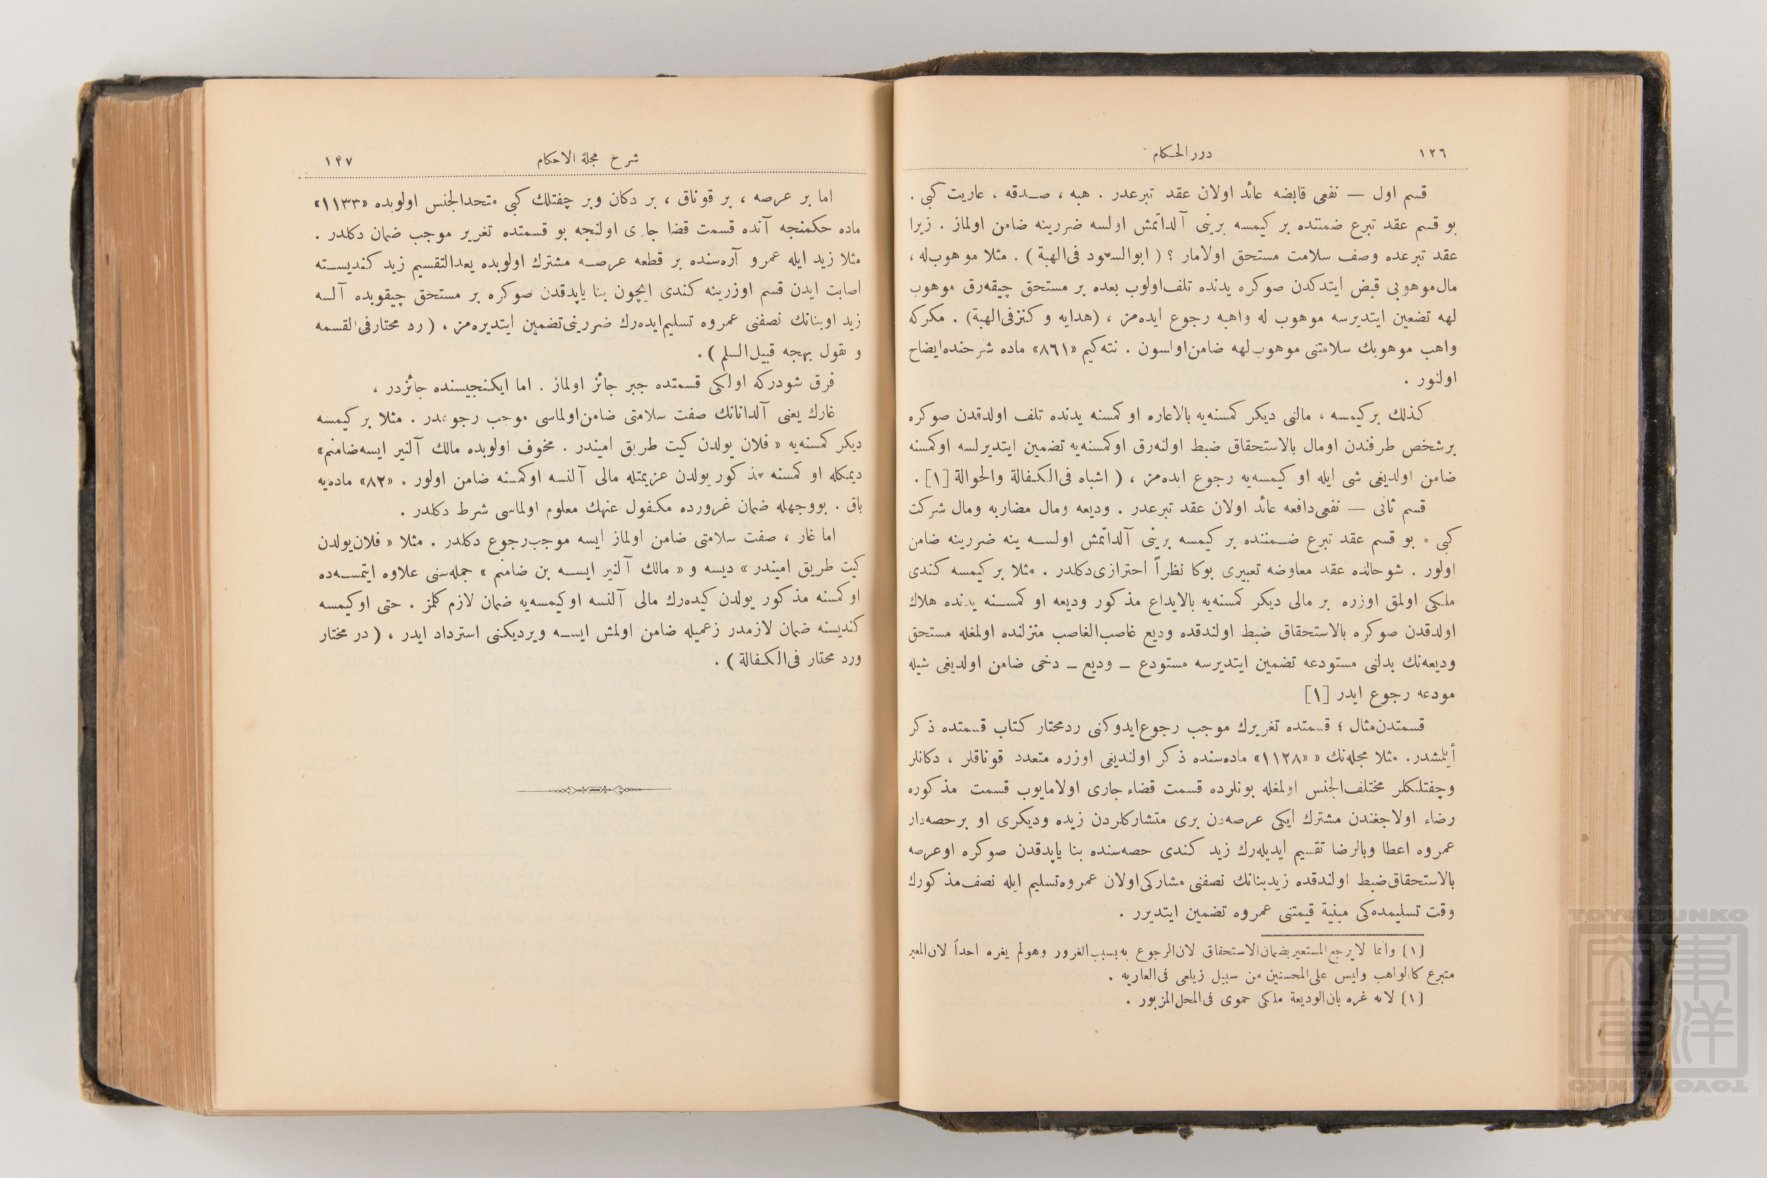 ١٢٦
درر الحكام
قسم اول — نفعى قابضه عائد اولان عقد تبرعدر . هبه ، صدقه ، عاريت كبى .
بو قسم عقد تبرع ضمننده بر كيمسه برينى آلداتمش اولسه ضررينه ضامن اولماز . زيرا
عقد تبرعده وصف سلامت مستحق اولامار ؟ ( ابوالسعود فى الهبة ) . مثلا موهوب له ،
مال موهوبى قبض ايتدكدن صوكره يدنده تلف اولوب بعده بر مستحق چيقه رق موهوب
لهه تضمين ايتديرسه موهوب له واهبه رجوع ايده مز ، (هدايه و كنز فى الهبة) . مكركه
واهب موهوبك سلامتنى موهوب لهه ضامن اولسون . نته كيم «٨٦١» ماده شرحنده ايضاح
اولنور .
كذلك بر كيمسه ، مالنى ديكر كمسنه يه بالاعاره او كمسنه يدنده تلف اولدقدن صوكره
بر شخص طرفندن اومال بالاستحقاق ضبط اولنه رق او كمسنه يه تضمين ايتديرلسه او كمسنه
ضامن اولديغى شى ايله او كيمسه يه رجوع ايده مز ، ( اشباه فى الكفالة والحوالة [١] .
قسم ثانى — نفعى دافعه عائد اولان عقد تبرعدر . وديعه ومال مضاربه ومال شركت
كبى . بو قسم عقد تبرع ضمننده بر كيمسه برينى آلداتمش اولسه ينه ضررينه ضامن
اولور . شو حالده عقد معاوضه تعبيرى بوكا نظراً احترازى دكلدر . مثلا بر كيمسه كندى
ملكى اولمق اوزره بر مالى ديكر كمسنه يه بالايداع مذكور وديعه او كمسنه يدنده هلاك
اولدقدن صوكره بالاستحقاق ضبط اولندقده وديع غاصب الغاصب منزلنده اولمغله مستحق
وديعه نك بدلنى مستودعه تضمين ايتديرسه مستودع – وديع – دخى ضامن اولديغى شيله
مودعه رجوع ايدر [١]
قسمتدن مثال ؛ قسمتده تغريرك موجب رجوع ايدوكنى رد محتار كتاب قسمتده ذكر
أيلمشدر . مثلا مجله نك « «١١٢٨» ماده سنده ذكر اولنديغى اوزره متعدد قوناقلر ، دكانلر
وچفتلكلر مختلف الجنس اولمغله بونلرده قسمت قضاء جارى اولامايوب قسمت مذكوره
رضاء اولاجغندن مشترك ايكى عرصه دن برى متشاركلردن زيده وديكرى او بر حصه دار
عمروه اعطا وبالرضا تقسيم ايديله رك زيد كندى حصه سنده بنا ياپدقدن صوكره اوعرصه
بالاستحقاق ضبط اولندقده زيد بنانك نصفنى مشاركى اولان عمروه تسليم ايله نصف مذكورك
وقت تسليمده كى مبنية قيمتنى عمروه تضمين ايتديرر .
[١] وانما لايرجع المستعير بضمان الاستحقاق لان الرجوع به بسبب الغرور وهولم يغره احداً لان المعير
متبرع كالواهب وليس على المحسنين من سبيل زيلعى فى العاريه .
[١] لانه غره بان الوديعة ملكى حموى فى المحل المزبور .
شرح مجلة الاحكام
١٢٧
اما بر عرصه ، بر قوناق ، بر دكان وبر چفتلك كبى متحد الجنس اولوبده «١١٣٣»
ماده حكمنجه آنده قسمت قضا جارى اولنجه بو قسمتده تغرير موجب ضمان دكلدر .
مثلا زيد ايله عمرو آره سنده بر قطعه عرصه مشترك اولوبده بعد التقسيم زيد كنديسنه
اصابت ايدن قسم اوزرينه كندى ايچون بنا ياپدقدن صوكره بر مستحق چيقوبده آلسه
زيد اوبنانك نصفنى عمروه تسليم ايده رك ضررينى تضمين ايتديره مز ، ( رد محتار فى القسمه
و نقول بهجه قبيل السلم ) .
فرق شودركه اولكى قسمتده جبر جائز اولماز . اما ايكنجيسنده جائزدر ،
غارك يعنى آلدانانك صفت سلامتى ضامن اولماسى موجب رجوعدر . مثلا بر كيمسه
ديكر كمسنه يه « فلان يولدن كيت طريق اميندر . مخوف اولوبده مالك آلنير ايسه ضامنم»
ديمكله او كمسنه مذكور يولدن عزيمتله مالى آلنسه اوكمسنه ضامن اولور . «٨٢» ماده يه
باق . بووجهله ضمان غرورده مكفول عنهك معلوم اولماسى شرط دكلدر .
اما غار ، صفت سلامتى ضامن اولماز ايسه موجب رجوع دكلدر . مثلا « فلان يولدن
كيت طريق اميندر » ديسه و « مالك آلنير ايسه بن ضامنم » جمله سنى علاوه ايتمسه ده
او كمسنه مذكور يولدن كيده رك مالى آلنسه او كيمسه يه ضمان لازم كلمز . حتى او كيمسه
كنديسنه ضمان لازمدر زعميله ضامن اولمش ايسه ويرديكنى استرداد ايدر ، ( در مختار
ورد محتار فى الكفالة ) .
TOYO BUNKO
東洋文庫
TOYO BUNKO